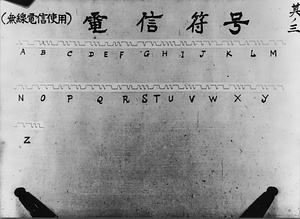 (無線電信使用) 電信符号 其三
A B C D E F G H I J K L M
N O P Q R S T U V W X Y
Z